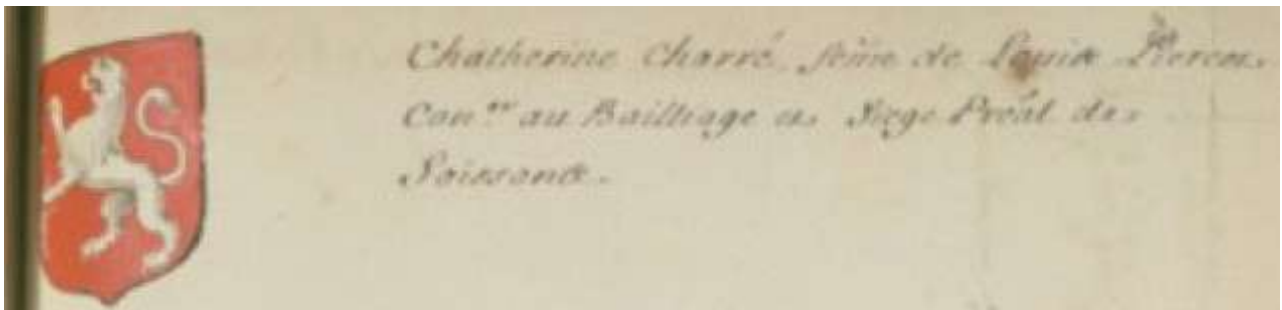 Chatherine Charré, feme de Louis
Con.er au Bailliage et Siege Preal de
Soissons.